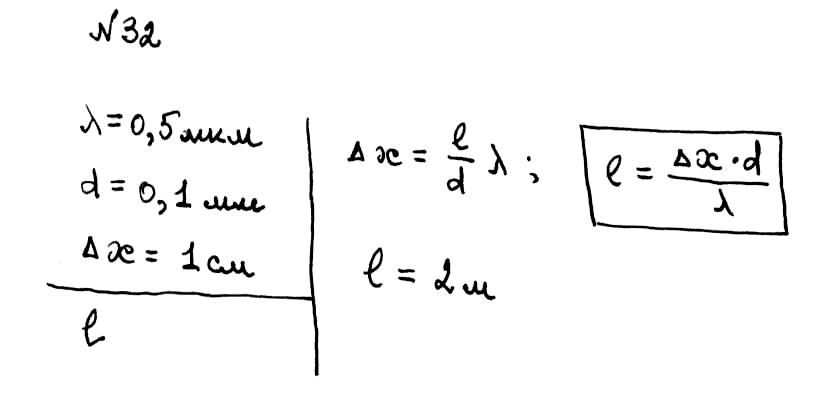 N32
λ = 0,5 мкм
d = 0,1 мм
Δx = 1 см
l
Δx = l/d λ ;
l = Δx · d / λ
l = 2 м